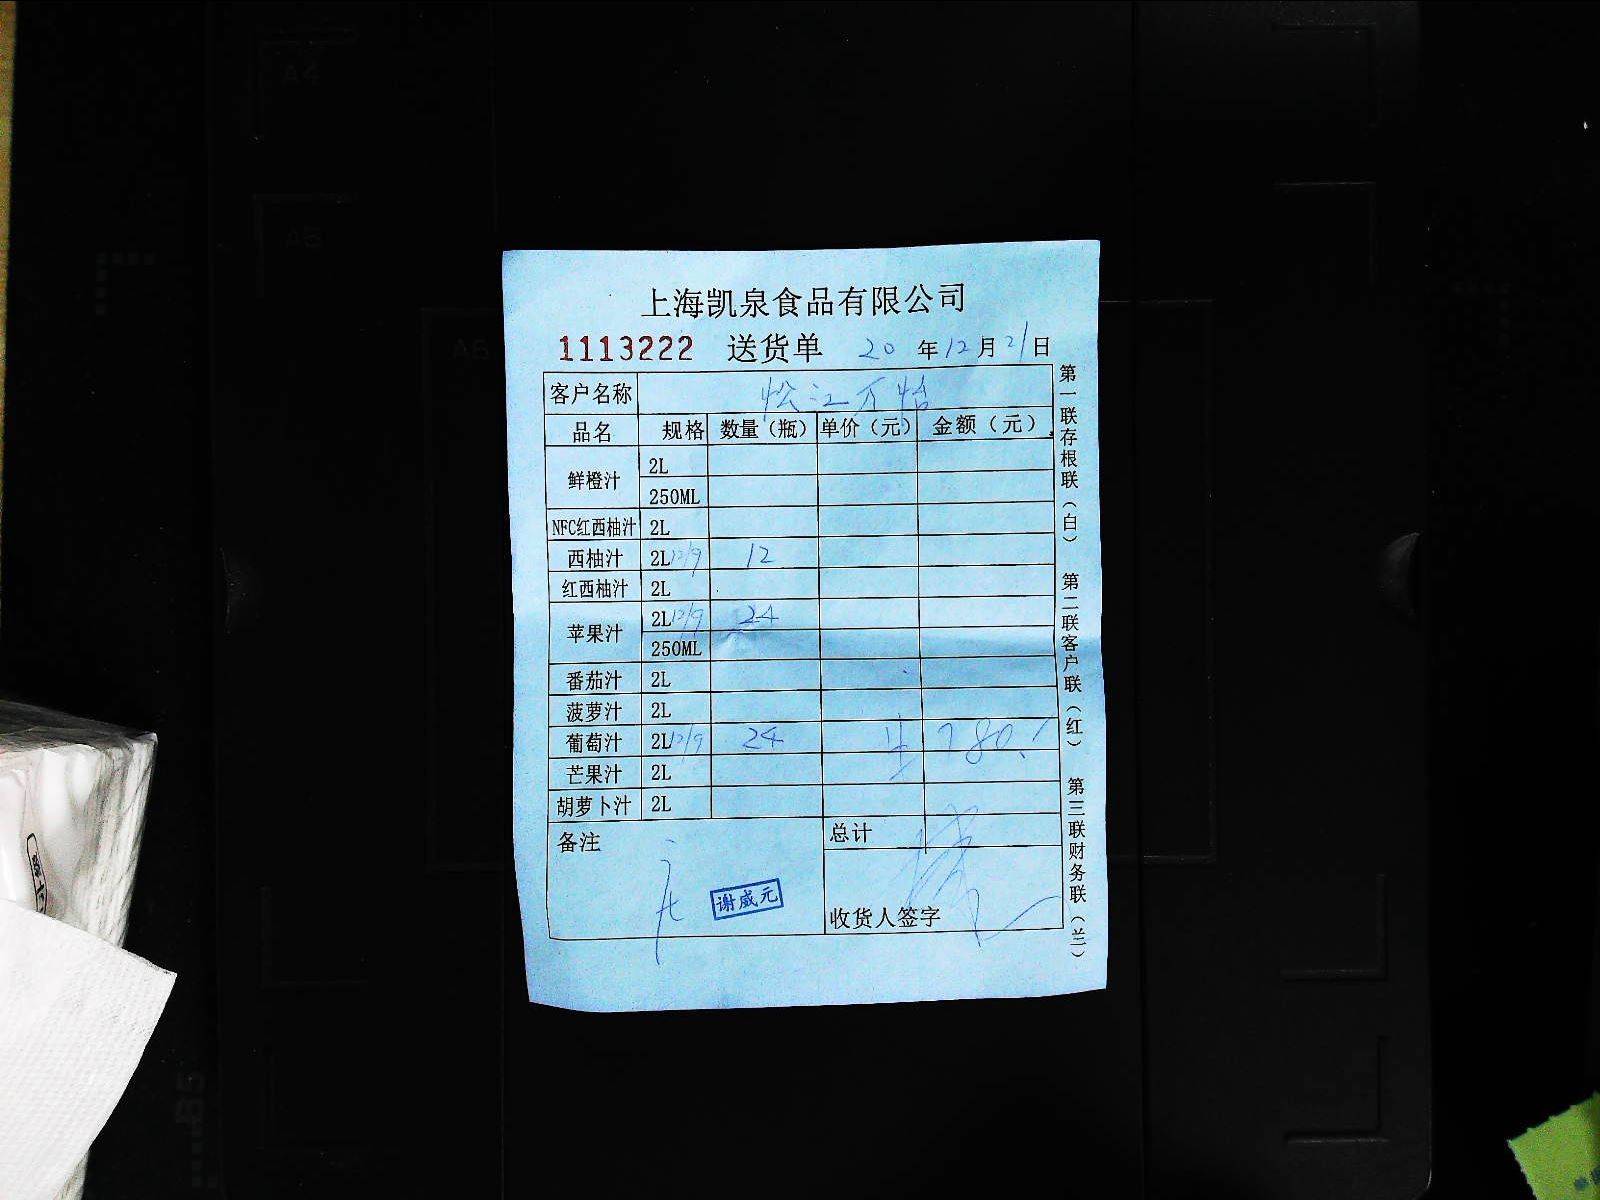 A4
A5
A6
B5
上海凯泉食品有限公司
1113222 送货单 20 年 12 月 21 日
客户名称 松江万怡
品名 规格 数量(瓶) 单价(元) 金额(元)
鲜橙汁 2L
250ML
NFC红西柚汁 2L
西柚汁 2L 12/9 12
红西柚汁 2L
苹果汁 2L 12/9 24
250ML
番茄汁 2L
菠萝汁 2L
葡萄汁 2L 12/9 24 780.
芒果汁 2L
胡萝卜汁 2L
备注 总计
谢威元
收货人签字
第一联存根联(白) 第二联客户联(红) 第三联财务联(兰)